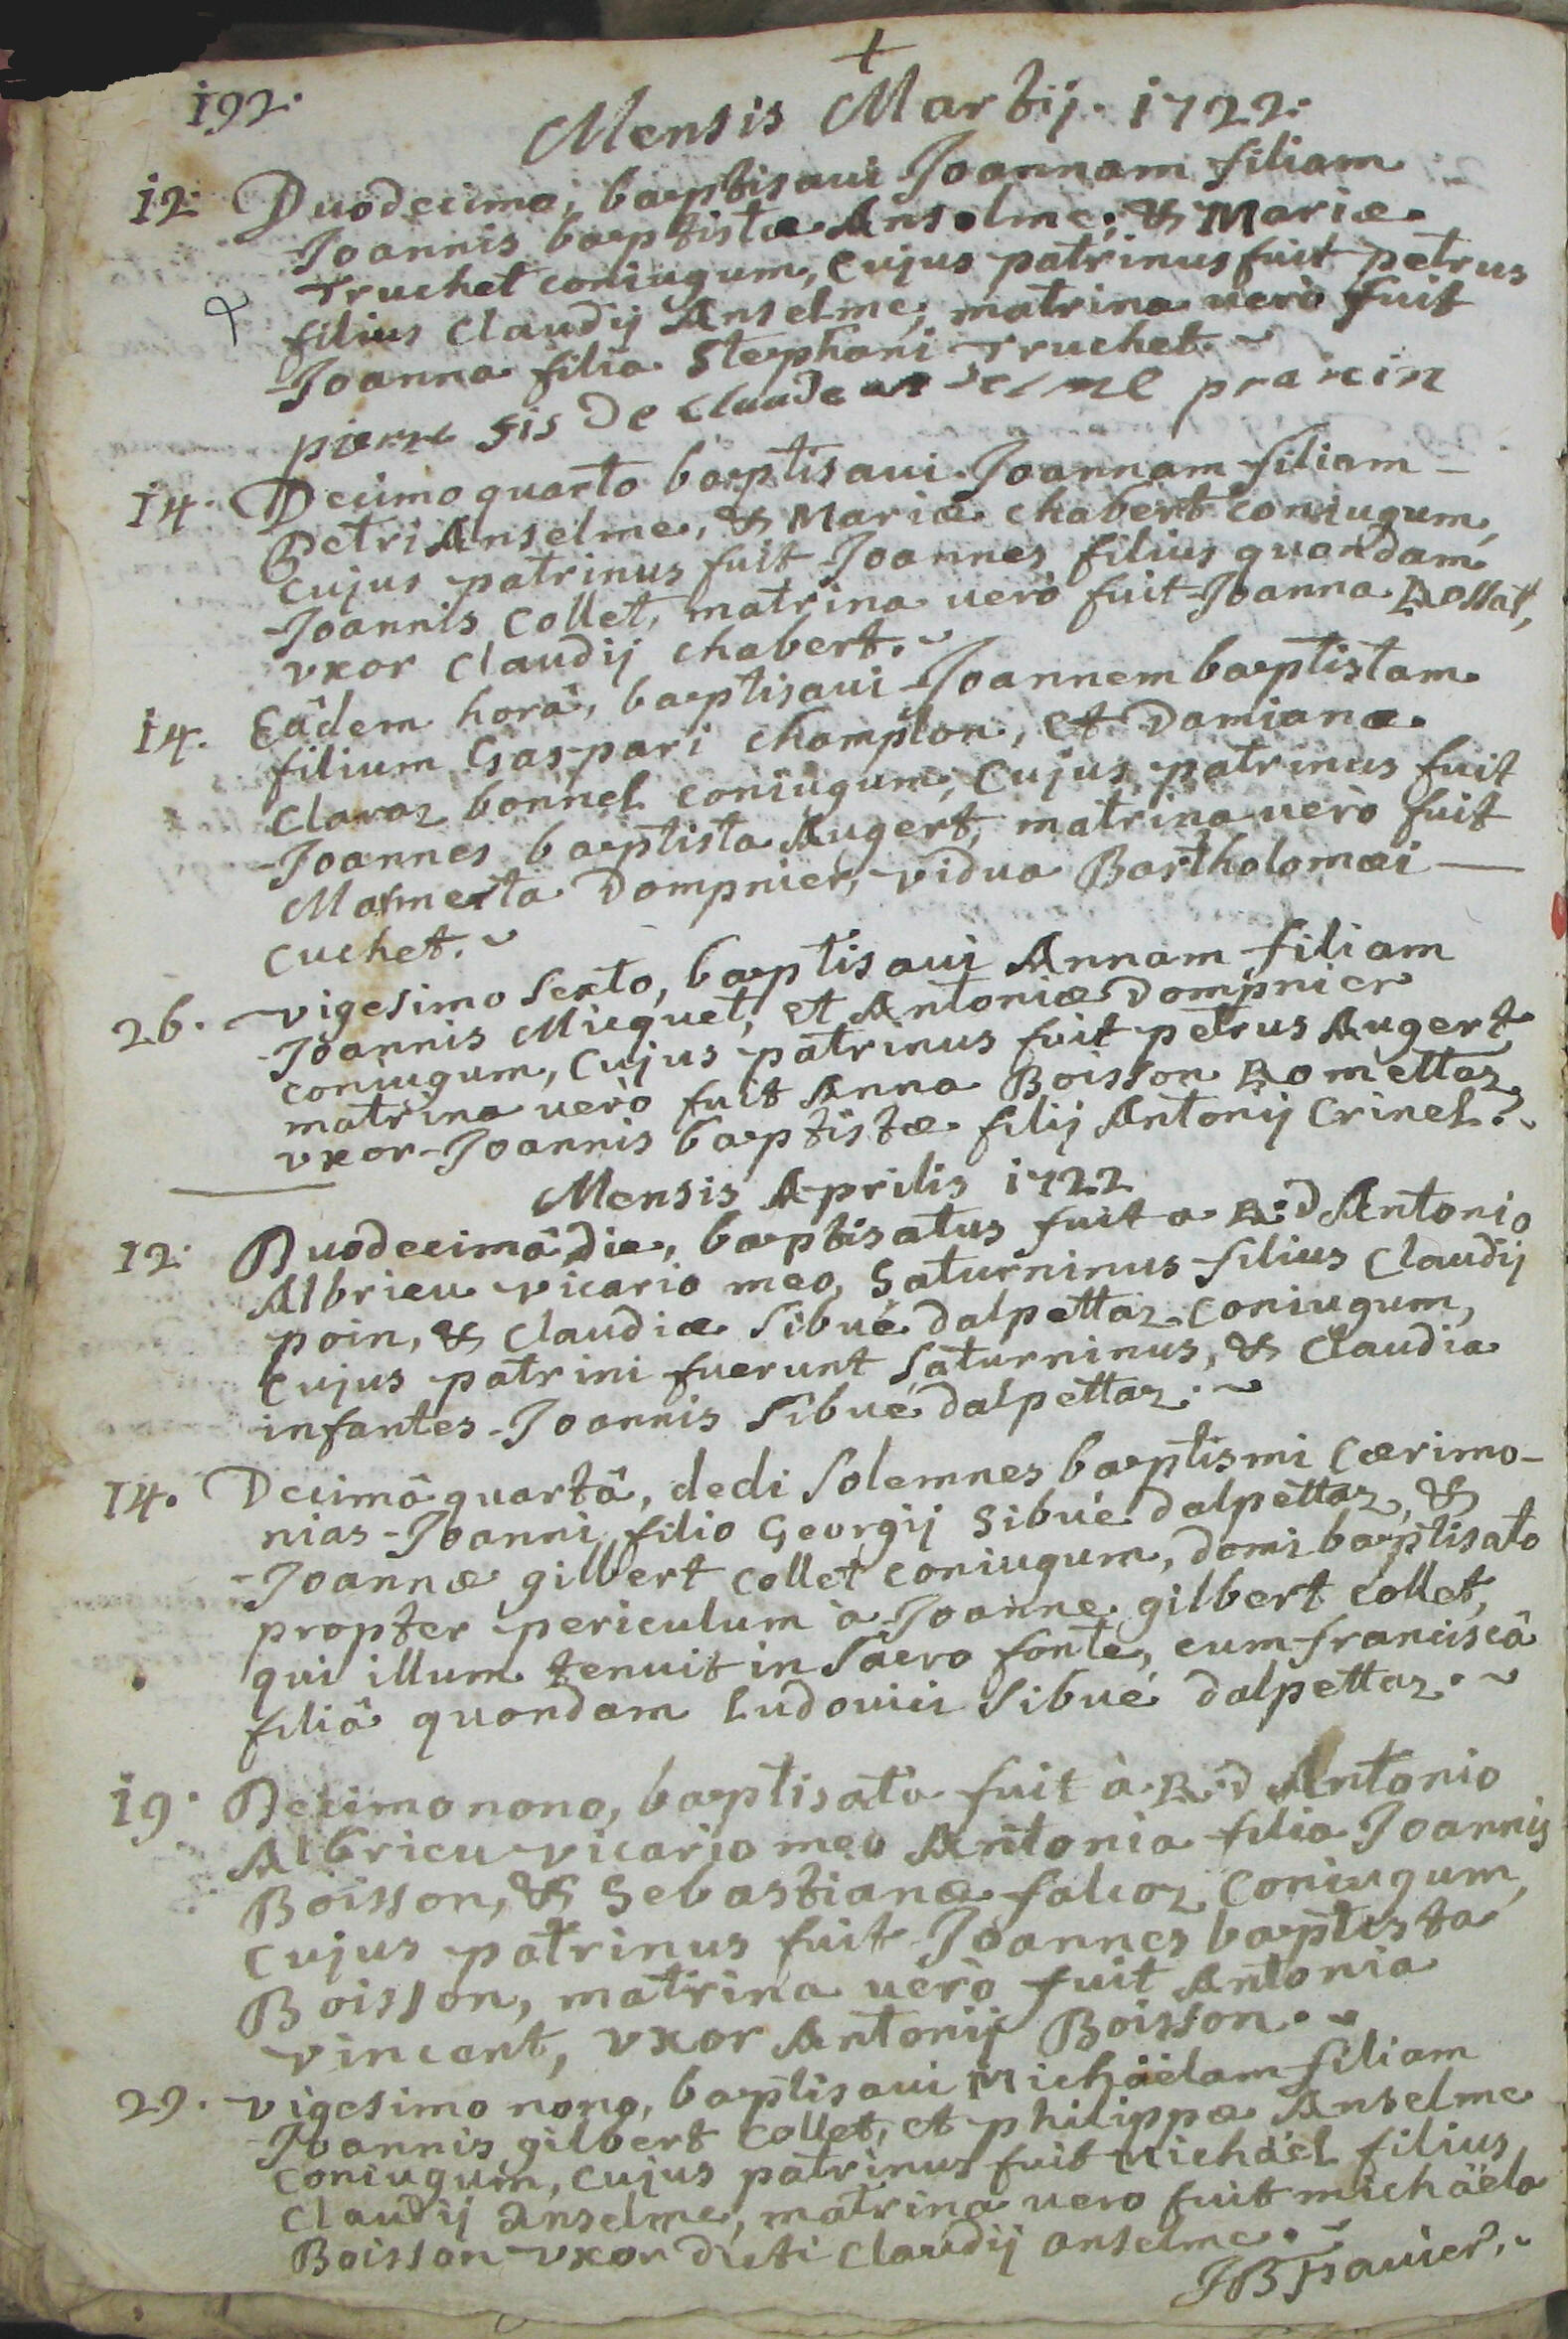 +
192.
Mensis Martij. 1722.
12. Duodecimo, baptisaui Joannam filiam
Joannis baptistæ Anselme, & Mariæ
Truchet coniugum, cujus patrinus fuit petrus
filius Claudij Anselme, matrina uerò fuit
Joanna filia Stephani Truchet.
pierre fis de Claude anselme prarein
14. Decimo quarto baptisaui Joannam filiam
Petri Anselme, & Mariæ Chabert coniugum,
cujus patrinus fuit Joannes filius quondam
Joannis Collet, matrina uerò fuit Joanna Rossat,
vxor Claudij Chabert.
14. Eâdem horâ, baptisaui Joannem baptistam
filium Gaspari Champlon, et Damianæ
Claraz bonnel coniugum, Cujus patrinus fuit
Joannes baptista Augert, matrina uerò fuit
Mamerta Dompnier, vidua Bartholomæi
Cuchet.
26. vigesimo Sexto, baptisaui Annam filiam
Joannis Micquet, et Antoniæ Dompnier
coniugum, Cujus patrinus fuit petrus Augert
matrina uerò fuit Anna Boisson Romettaz
vxor Joannis baptistæ filij Antonij Crinel.
Mensis Aprilis 1722
12. Duodecimâ die, baptisatus fuit a R.d Antonio
Albrieu vicario meo, Saturninus filius Claudij
poin, & Claudiæ Sibué dalpettaz coniugum,
Cujus patrini fuerunt Saturninus, & Claudia
infantes Joannis Sibué dalpettaz.
14. Decimâ quartâ, dedi Solemnes baptismi Cærimo-
nias Joanni filio Georgij Sibué dalpettaz, &
Joannæ gilbert Collet coniugum, domi baptisato
propter periculum à Joanne gilbert Collet,
qui illum tenuit in Sacro fonte, cum franciscâ
filiâ quondam Ludouici Sibué dalpettaz.
19. Decimo nono, baptisata fuit à R.d Antonio
Albrieu vicario meo Antonia filia Joannis
Boisson, & Sebastianæ falcoz Coniugum,
Cujus patrinus fuit Joannes baptista
Boisson, matrina uerò fuit Antonia
vincent, vxor Antonij Boisson.
29. vigesimo nono, baptisaui Michäelam filiam
Joannis gilbert Collet, et philippæ Anselme
Coniugum, cujus patrinus fuit Michäel filius
Claudij Anselme, matrina uero fuit michäela
Boisson vxor dicti Claudij anselme.
JB pauier.